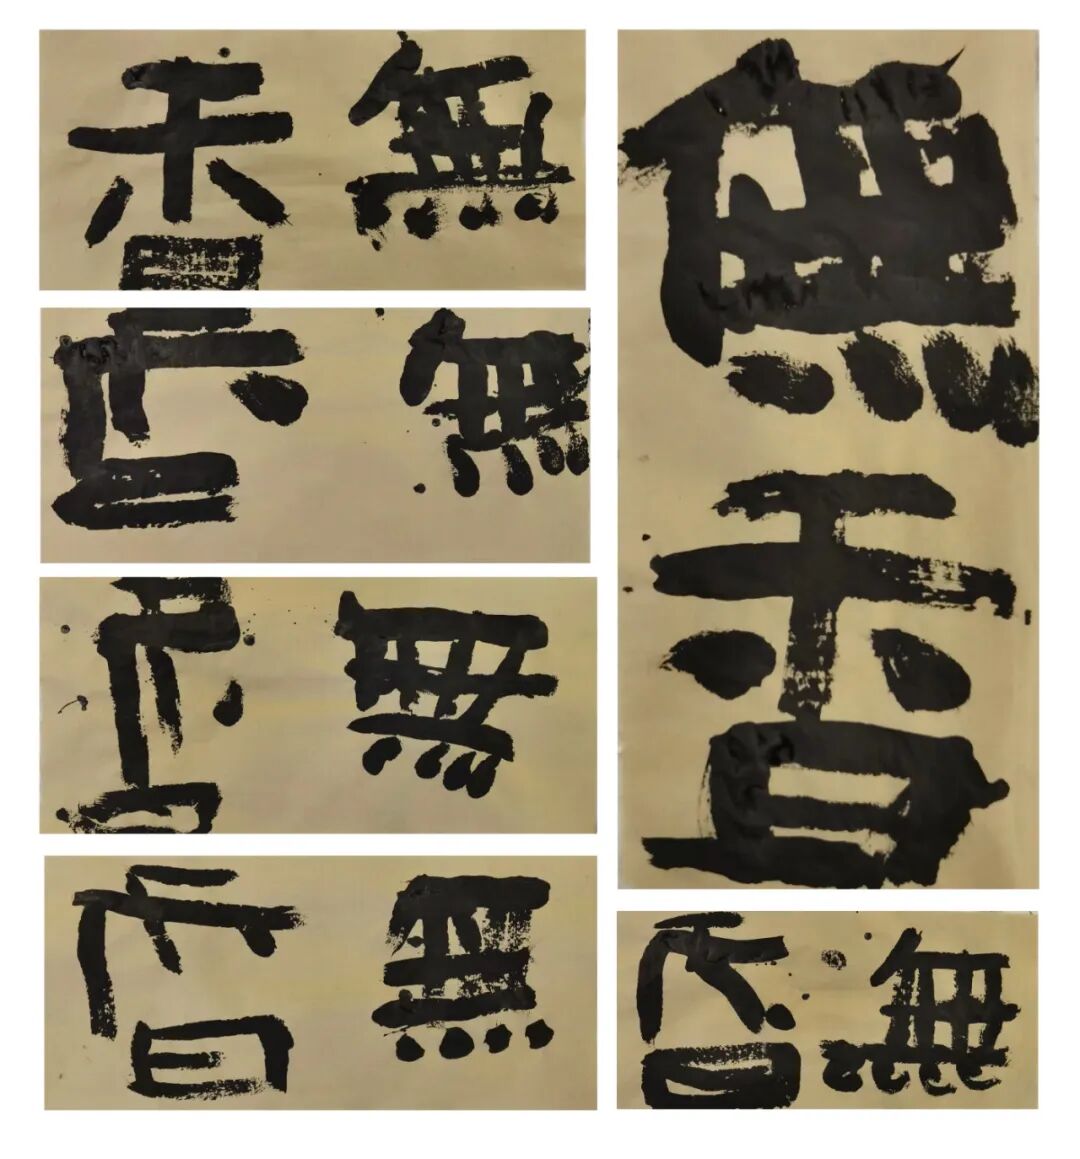 無香
無香
無香
無香
無香
無香